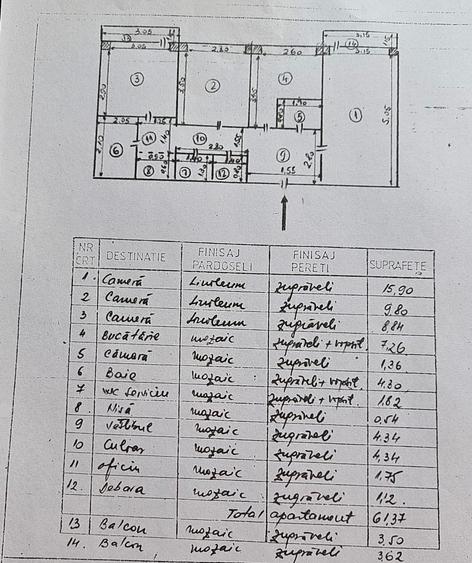 3.05 3.15
13 14
3.05 2.80 2.60 3.15
3 2 4 1
5
2.05
11 10
6 9
8 7 12
1.55
5.05
NR CRT DESTINATIE FINISAJ PARDOSELI FINISAJ PERETI SUPRAFETE
1. Cameră Linoleum zugrăveli 15,90
2 Cameră Linoleum zugrăveli 9.80
3 Cameră Linoleum zugrăveli 8,84
4 Bucătărie mozaic zugrăveli + vopsit. 7,26
5 Cămară mozaic zugrăveli 1,36
6 Baie mozaic zugrăveli + vopsit. 4.30
7 WC serviciu mozaic zugrăveli + vopsit. 1.82
8 Nișă mozaic zugrăveli 0,54
9 Vestibul mozaic zugrăveli 4.34
10 Culoar mozaic zugrăveli 4,34
11 oficiu mozaic zugrăveli 1,75
12. Debara mozaic zugrăveli 1,12
Total apartament 61,37
13 Balcon mozaic zugrăveli 3,50
14. Balcon mozaic zugrăveli 3,62